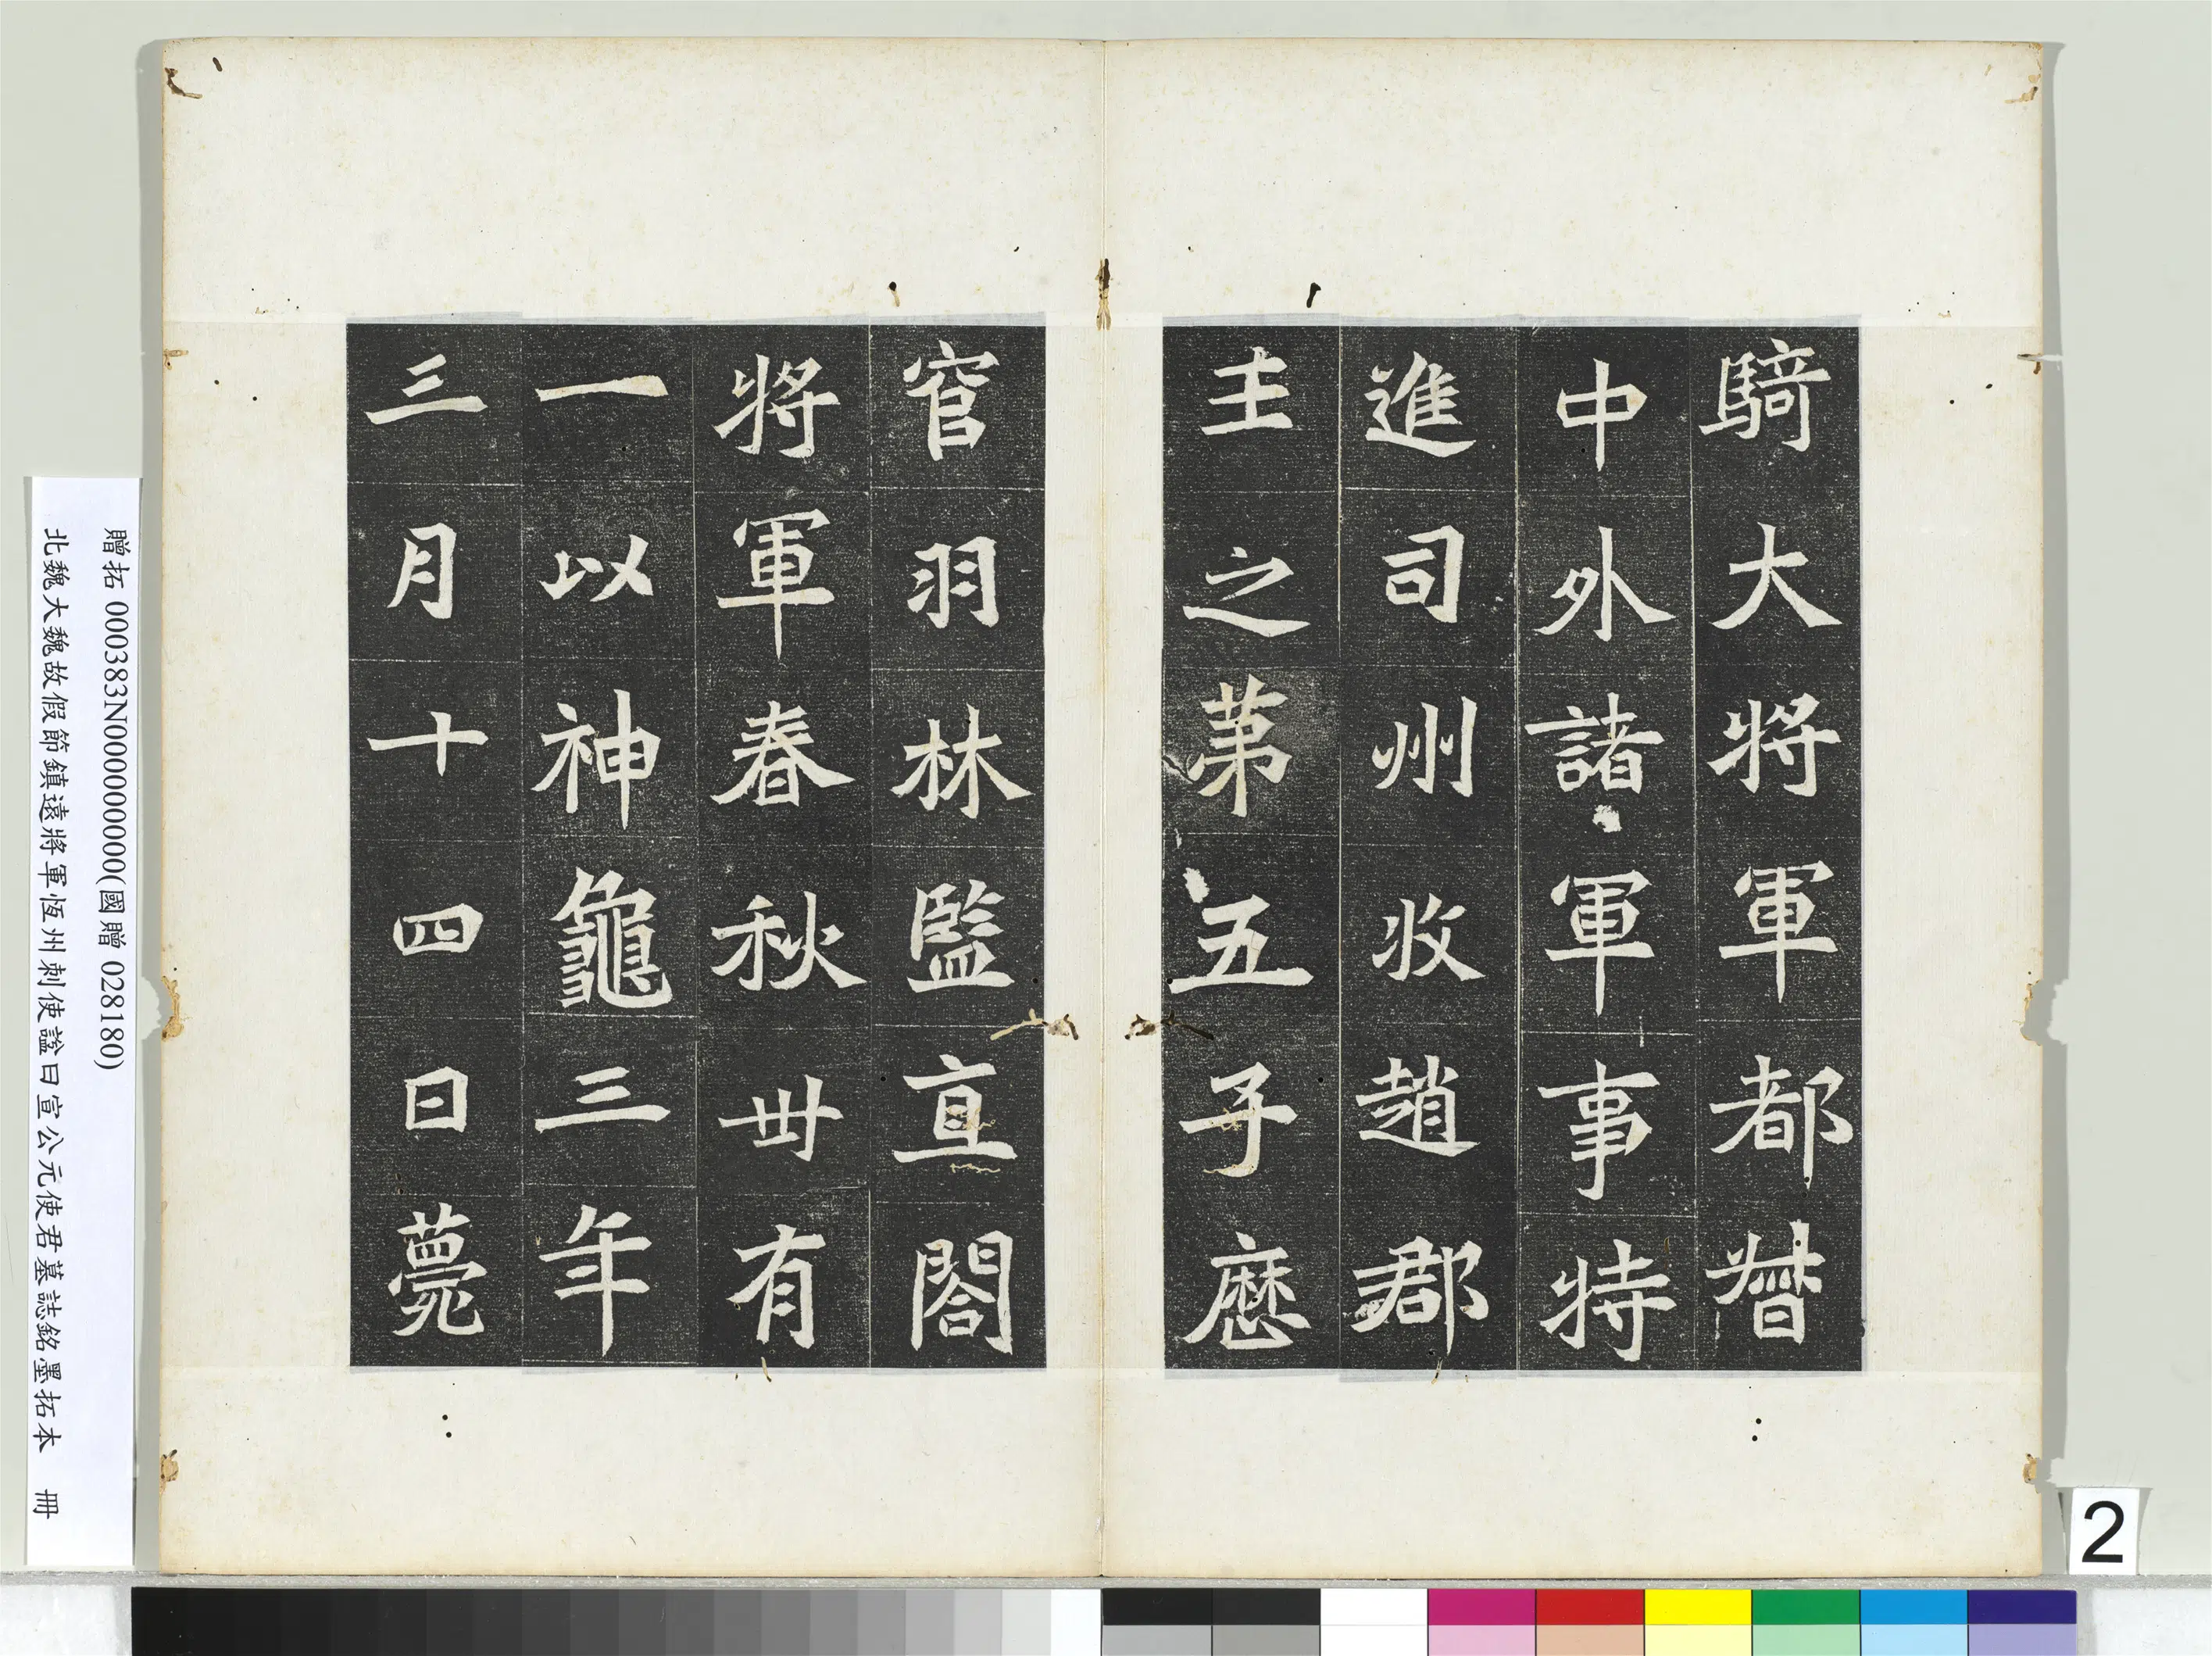 騎大將軍都督
中外諸軍事特
進司州牧趙郡
王之第五子歷
官羽林監直閤
將軍春秋卅有
一以神龜三年
三月十四日薨
贈拓 000383N000000000(國贈 028180)
北魏大魏故假節鎮遠將軍恆州刺使謚曰宣公元使君墓誌銘墨拓本 冊
2